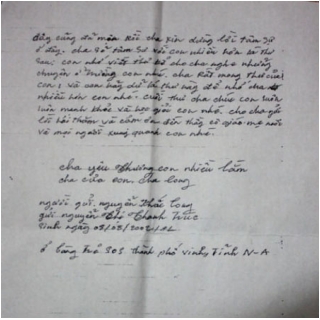 đây cũng đã muộn rồi cha xin dừng lời tâm sự
ở đây. cha sẽ tâm sự với con nhiều hơn ở thư
sau, con nhớ viết thư về cho cha nghe những
chuyện ở trường con nhé. cha rất mong thư của
con, và con hãy dữ lá thư này để nhớ cha
nhiều hơn con nhé. cuối thư cha chúc con luôn
luôn mạnh khỏe và học giỏi con nhé. cho cha gửi
lời hỏi thăm và cảm ơn đến thầy cô giáo mẹ nuôi
và mọi người xung quanh con nhé.
cha yêu thương con nhiều lắm
cha của con. cha long
người gửi. nguyễn khắc long
gửi nguyễn thị thanh trúc
sinh ngày
ở làng trẻ SOS thành phố vinh, Tỉnh N-A